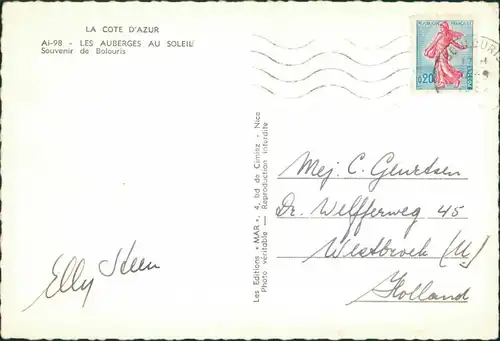 LA COTE D'AZUR
Ai-98 - LES AUBERGES AU SOLEIL
Souvenir de Bolouris
REPUBLIQUE FRANÇAISE
0,20
Les Editions "MAR", 4, bd de Cimiez - Nice
Photo véritable — Reproduction interdite
Mej. C. Geurtsen
Dr. Welfferweg 45
Westbroek (U.)
Holland
Elly Steen